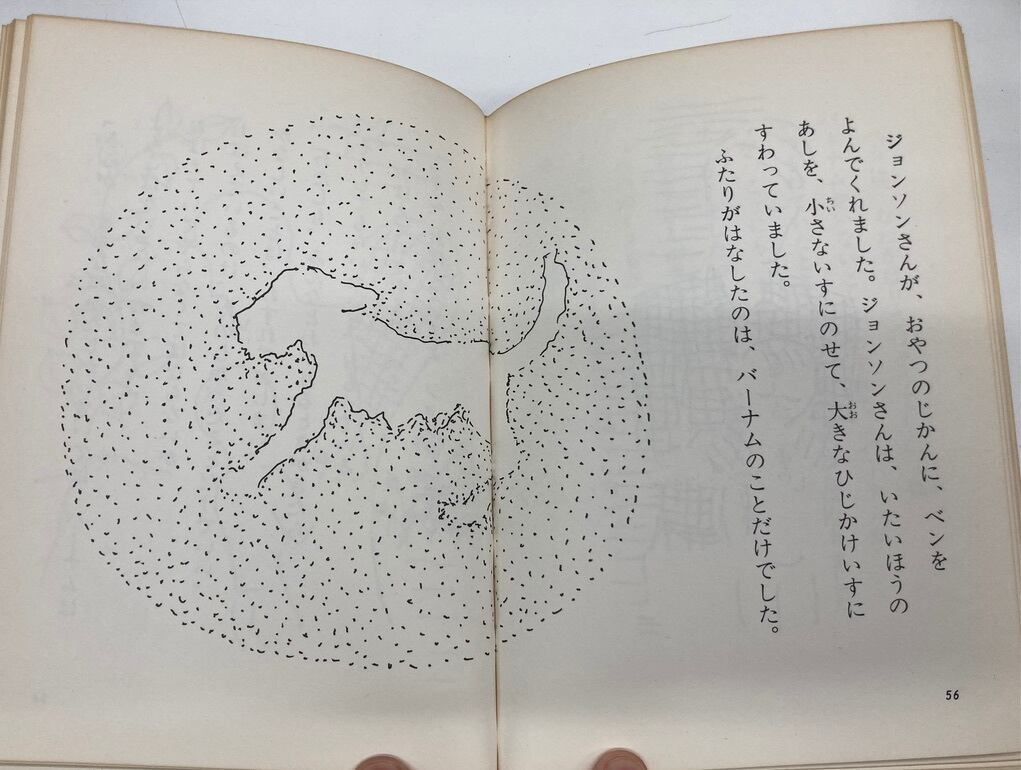 ジョンソンさんが、おやつのじかんに、ベンを
よんでくれました。ジョンソンさんは、いたいほうの
あしを、小さないすにのせて、大きなひじかけいすに
すわっていました。
ふたりがはなしたのは、バーナムのことだけでした。
56